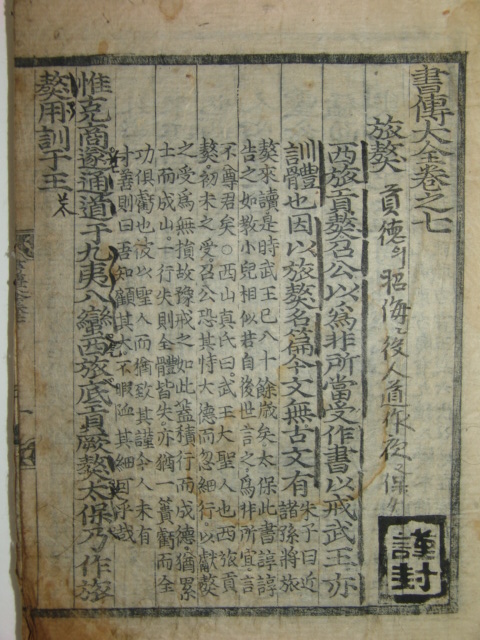 書傳大全卷之七
旅獒
西旅貢獒召公以爲非所當受作書以戒武王亦
訓體也因以旅獒名篇今文無古文有
朱子曰近
諸孫將旅
獒來讀是時武王已八十餘歲矣太保此書諄諄
告之如教小兒相似若自後世言之爲非所宜言
不尊君矣○西山真氏曰武王大聖人也西旅貢
獒初未之受召公恐其恃大德而忽細行以獻獒
之受爲無損故豫戒之如此蓋積行而成德猶累
土而成山一行失則全體皆失亦猶一簣虧而全
功俱虧也彼以聖人而猶致其謹今人未有
寸善則曰吾知顧其大不暇恤其細可乎哉
惟克商遂通道于九夷八蠻西旅底貢厥獒太保乃作旅
獒用訓于王
謹封